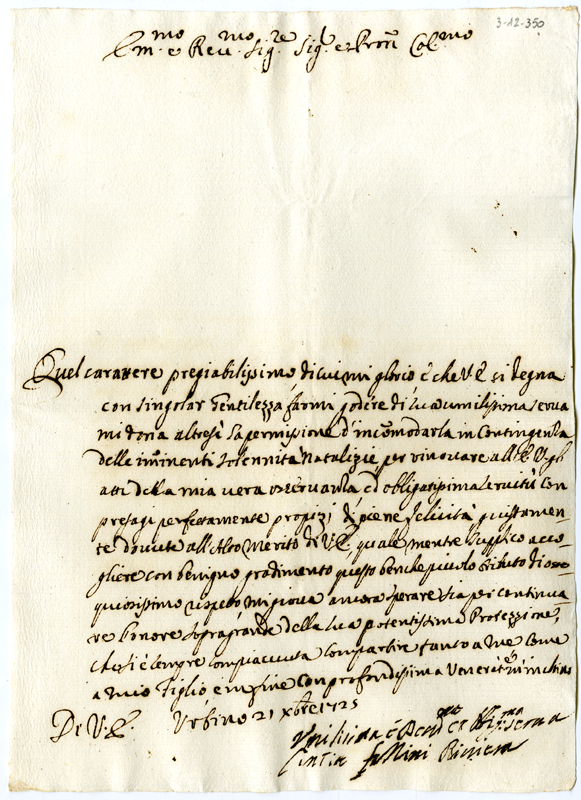 3-12-350
Em.mo e Rev.mo Sig.re Sig.r e Pron Col.mo
Quel carattere pregiabilissimo di cui mi glorio è che V E si degna
con singolar Gentilezza farmi godere di sua umilissima serva
mi dona altresì la permissione d'incomodarla in Contingenza
delle imminenti solennità Natalizie per rinovare all'E V gl
atti della mia vera osservanza, ed obligatissima servitù con
presagi perfettamente propizi, di piene felicità giustamen-
te dovute all'Alto Merito di V E, quale mente supplico acco-
gliere con benigno gradimento questo benche piccolo tributo di osse-
quiosissimo rispetto mi giova ancora sperare sia per continua-
re l'onore sopragrande della sua potentissima Protezzione,
che si è sempre compiacciuta compartire tanto a me come
a mio Figlio e in fine con profondissima m'inchino
Di V. E. Urbino 21 Xbre 1725
Umilissima e